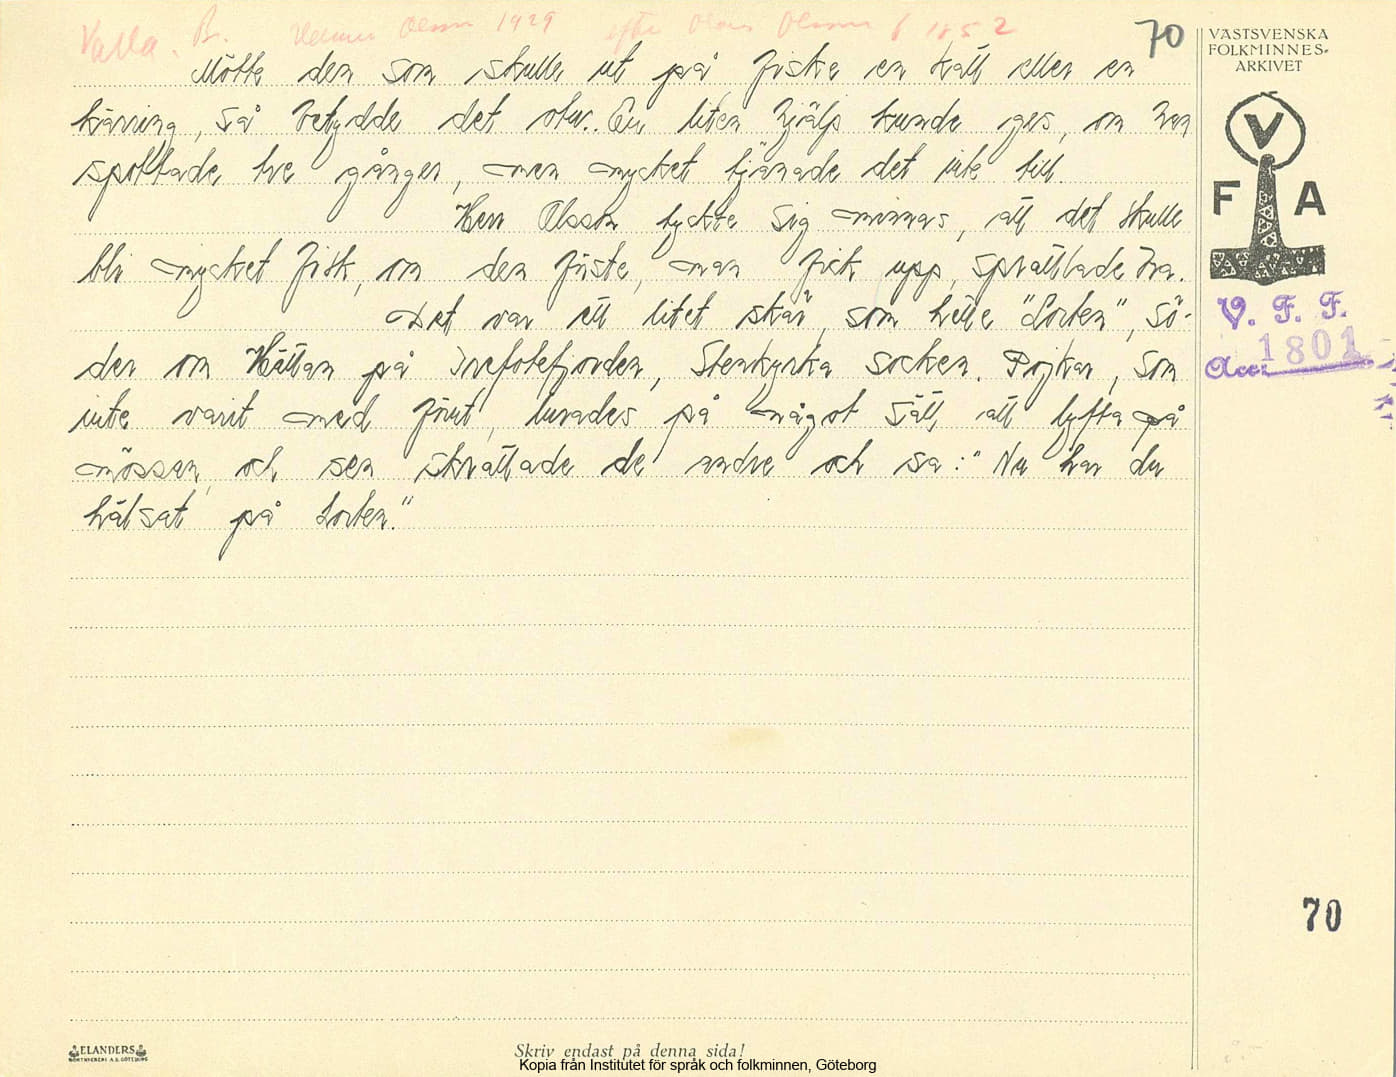 Valla. B. Olsson 1929 efter Olsson f 1852
70
VÄSTSVENSKA
FOLKMINNES-
ARKIVET
Mötte den som skulle ut på fiske en katt eller en
käring, så betydde det otur. En liten hjälp kunde ges, om han
spottade tre gånger, men mycket tjänade det inte till.
Herr Olsson tyckte sig minnas, att det skulle
bli mycket fisk, om den första, man fick upp, sprättlade bra.
Det var ett litet skär, som hette "Lorten", sö-
der om Hättan på fjorden, Stenkyrka socken. Pojkar, som
inte varit med förut, lurades på något sätt att lyfta på
mössan och sen skrattade de andre och sa: "Nu har du
hälsat på Lorten."
V
F A
V. F. F.
Acc: 1801
70
ELANDERS
Skriv endast på denna sida!
Kopia från Institutet för språk och folkminnen, Göteborg